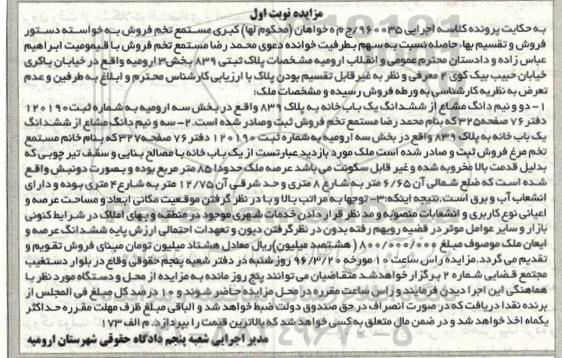 مزایده نوبت اول
به حکایت پرونده کلاسه اجرایی ۹۶۰۰۳۵/ج م ه خواهان (محکوم لها) کبری مستمع تخم فروش به خواسته دستور
فروش و تقسیم بهاء حاصله نسبت به سهم بطرفیت خوانده دعوی محمد رضا مستمع تخم فروش با قیمومیت ابراهیم
عباس زاده و دادستان محترم عمومی و انقلاب ارومیه مشخصات پلاک ثبتی ۸۳۹ بخش۳ ارومیه واقع در خیابان باکری
خیابان حبیب بیک کوی ۲ معرفی و نظر به غیر قابل تقسیم بودن پلاک با ارزیابی کارشناس محترم و ابلاغ به طرفین و عدم
تعرض به نظریه کارشناسی به ورطه فروش رسیده و مشخصات ملک:
۱- دو و نیم دانگ مشاع از ششدانگ یک باب خانه به پلاک ۸۳۹ واقع در بخش سه ارومیه به شماره ثبت۱۲۰۱۹۰
دفتر ۷۶ صفحه۳۲۵ که بنام محمد رضا مستمع تخم فروش ثبت وصادر شده است.۲- سه و نیم دانگ مشاع از ششدانگ
یک باب خانه به پلاک ۸۳۹ واقع در بخش سه ارومیه به شماره ثبت ۱۲۰۱۹۰ دفتر ۷۶ صفحه۳۲۷ که بنام خانم مستمع
تخم مرغ فروش ثبت و صادر شده است ملک مورد بازدید عبارتست از یک باب خانه با مصالح بنایی و سقف تیر چوبی که
بدلیل قدمت بالا مخروبه شده و غیر قابل سکونت می باشد عرصه ملک حدودا ۸۵ متر مربع بوده و بصورت دونبش واقع
شده است که ضلع شمالی آن ۶/۶۵ متر به شارع ۸ متری و حد شرقی آن ۱۲/۷۵ متر به شارع ۴ متری بوده و دارای
انشعاب آب و برق است.نتیجه اینکه:۳- توجها به مراتب بالا و با در نظر گرفتن موقعیت مکانی ابعاد و مساحت عرصه و
اعیانی نوع کاربری و انشعابات منصوبه و مد نظر قرار دادن خدمات شهری موجود در منطقه و بهای املاک در شرایط کنونی
بازار و سایر عوامل موثر در قضیه رویهم رفته بدون در نظر گرفتن دیون و تعهدات احتمالی ارزش پایه ششدانگ عرصه و
ایعان ملک موصوف مبلغ ۸۰۰/۰۰۰/۰۰۰ (هشتصد میلیون)ریال معادل هشتاد میلیون تومان مبنای فروش تقویم و
تقدیم می گردد.مزایده راس ساعت ۱۰ مورخه ۹۶/۳/۲۰ روز شنبه در دفتر شعبه پنجم حقوقی وقاع در بلوار دستغیب
مجتمع قضایی شماره ۲ برگزار خواهدشد متقاضیان می توانند پنج روز مانده به مزایده از محل و دستگاه مورد نظر با
هماهنگی این اجرا دیدن فرمایند و راس ساعت مقرره در محل مزایده حاضر شوند و ۱۰ درصد کل مبلغ فی المجلس از
برنده نقدا دریافت که در صورت انصراف در حق صندوق دولت ضبط خواهد شد و الباقی مبلغ ظرف مهلت مقرره حداکثر
یکماه اخذ خواهد شد و در ضمن مال متعلق به کسی خواهد شد که بالاترین قیمت را بپردازد. م الف ۱۷۳
مدیر اجرایی شعبه پنجم دادگاه حقوقی شهرستان ارومیه